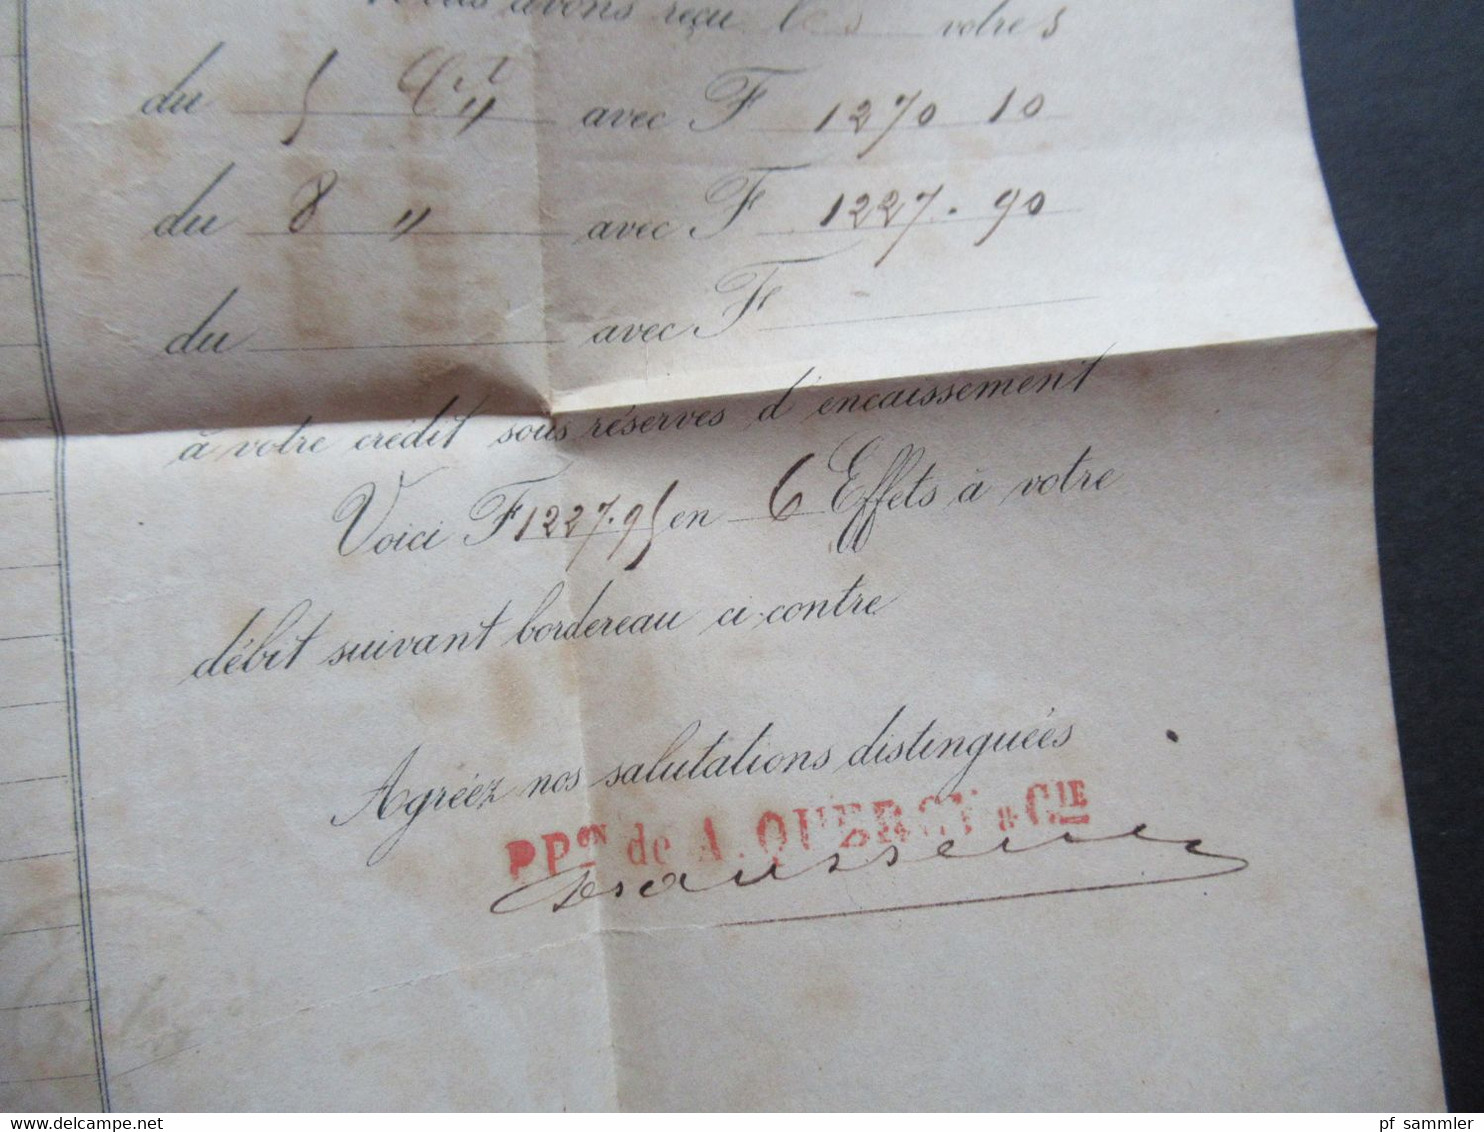 Nous avons reçu les votres
du 5 Ct avec F 1270 10
du 8 " avec F 1227.90
du avec F
à votre crédit sous réserves d'encaissement
Voici F 1227.95 en 6 Effets à votre
débit suivant bordereau ci-contre
Agréez nos salutations distinguées
PPon de A. QUERCY & CIE
pf_sammler
www.delcampe.net